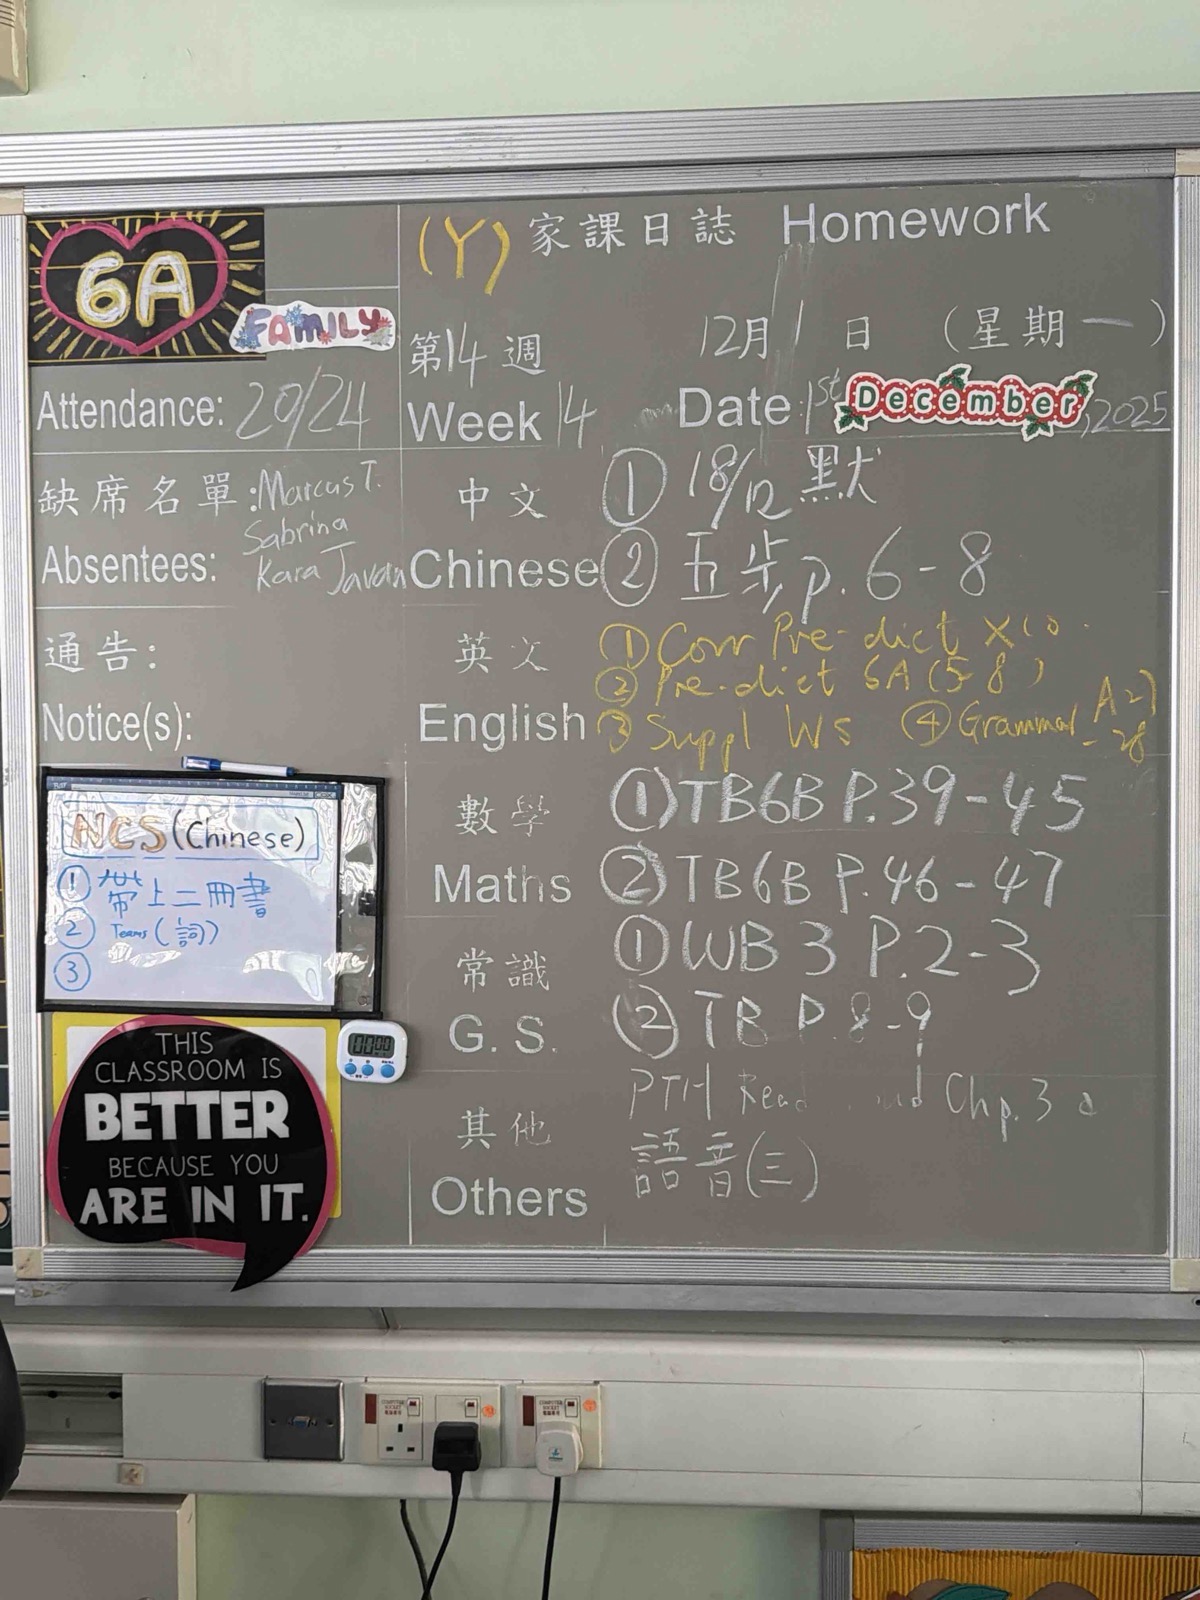 6A
FAMILY
(Y) 家課日誌 Homework
第14週 12月1日 (星期一)
Attendance: 20/24
Week 14 Date: 1st December, 2025
缺席名單: Marcus T.
Sabrina
Absentees: Kara Javan
中文 ① 18/12 默
Chinese ② 五步 p. 6-8
通告:
Notice(s):
英文 ① Corr Pre-dict X10
② Pre-dict 6A (5-8)
English ③ Suppl WS ④ Grammar
數學 ① TB6B P.39-45
Maths ② TB6B P.46-47
常識 ① WB 3 P.2-3
G.S. ② TB P.8-9
其他 PTH Read Chp.3
Others 語音(三)
NCS (Chinese)
① 帶上二冊書
② Teams (詞)
③
THIS
CLASSROOM IS
BETTER
BECAUSE YOU
ARE IN IT.
00:00
COMPUTER
SOCKET
COMPUTER
SOCKET